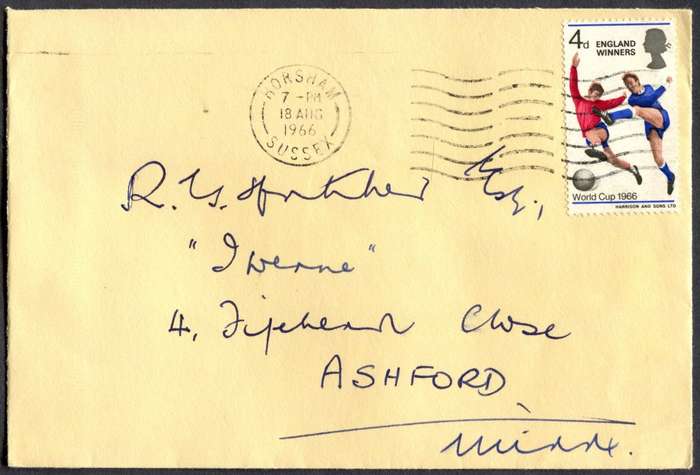 HORSHAM
7 - PM
18 AUG
1966
SUSSEX
4d ENGLAND WINNERS
World Cup 1966
HARRISON AND SONS LTD
R. G. Esq.,
"Iwerne"
4, Close
ASHFORD
Middx.